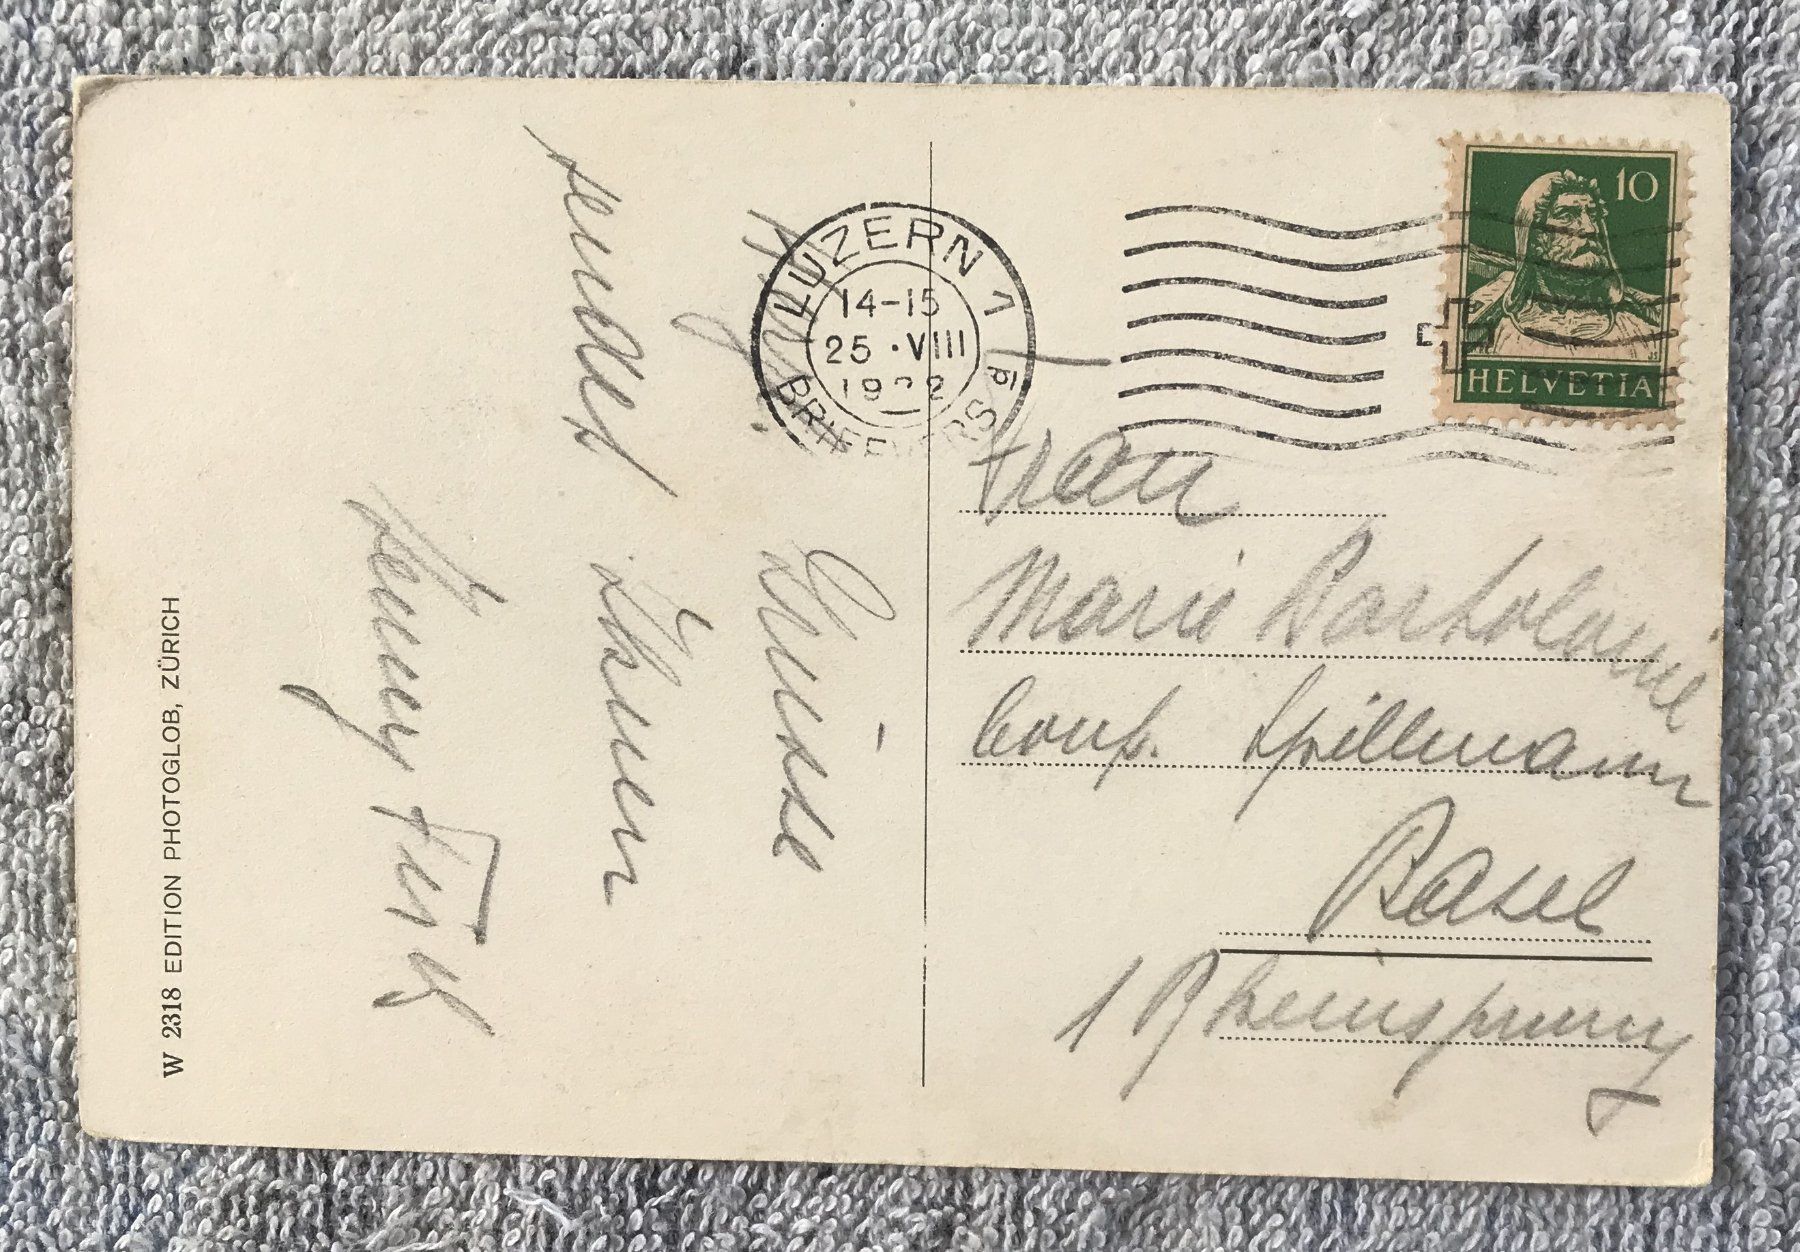 W 2318 EDITION PHOTOGLOB, ZÜRICH
Grüsse
sendet Ihnen
Jenny
LUZERN 1
14-15
25 · VIII
BRIEFVERS
10
HELVETIA
Frau
Marie Bartholomé
Conf. Spillmann
Basel
1 Rheinsprung